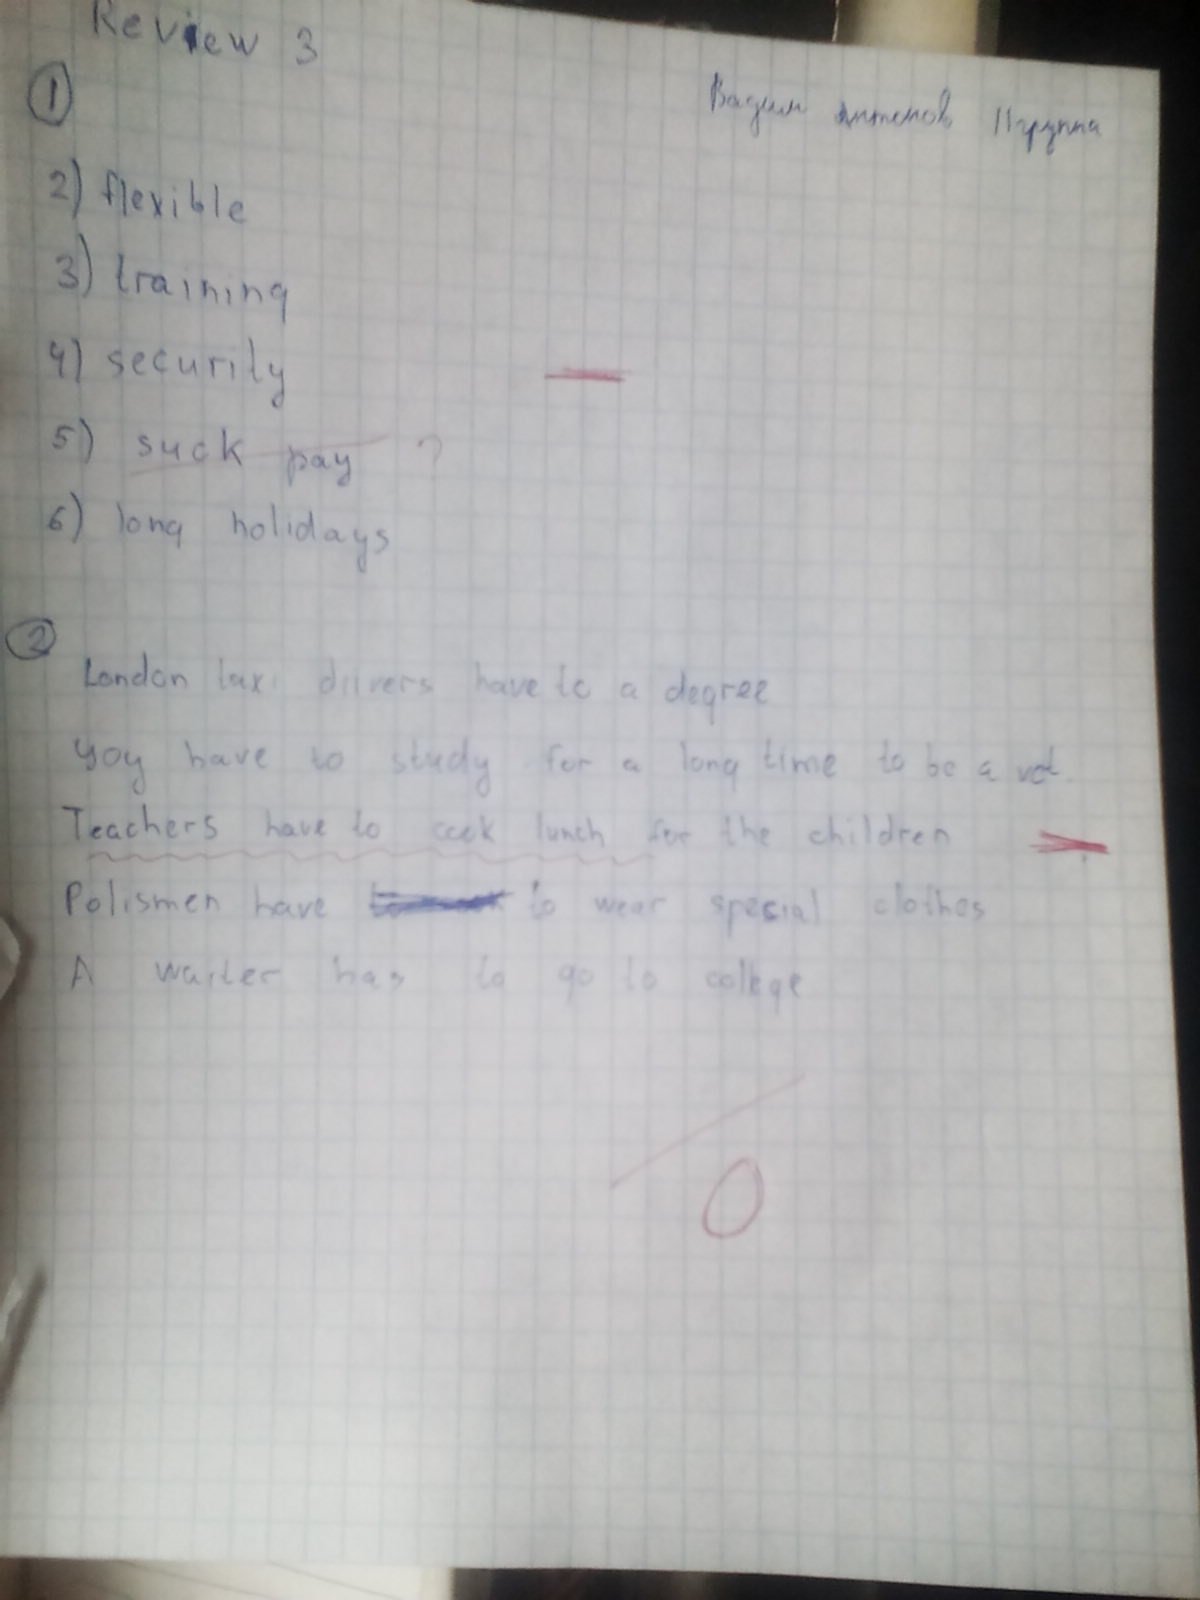 Review 3
Вадим Антонов II группа
1
2) flexible
3) training
4) security
5) suck pay ?
6) long holidays
2
London taxi drivers have to a degree
yoy have to study for a long time to be a vet.
Teachers have to cook lunch for the children
Polismen have to wear spesial clothes
A waiter has to go to college
0